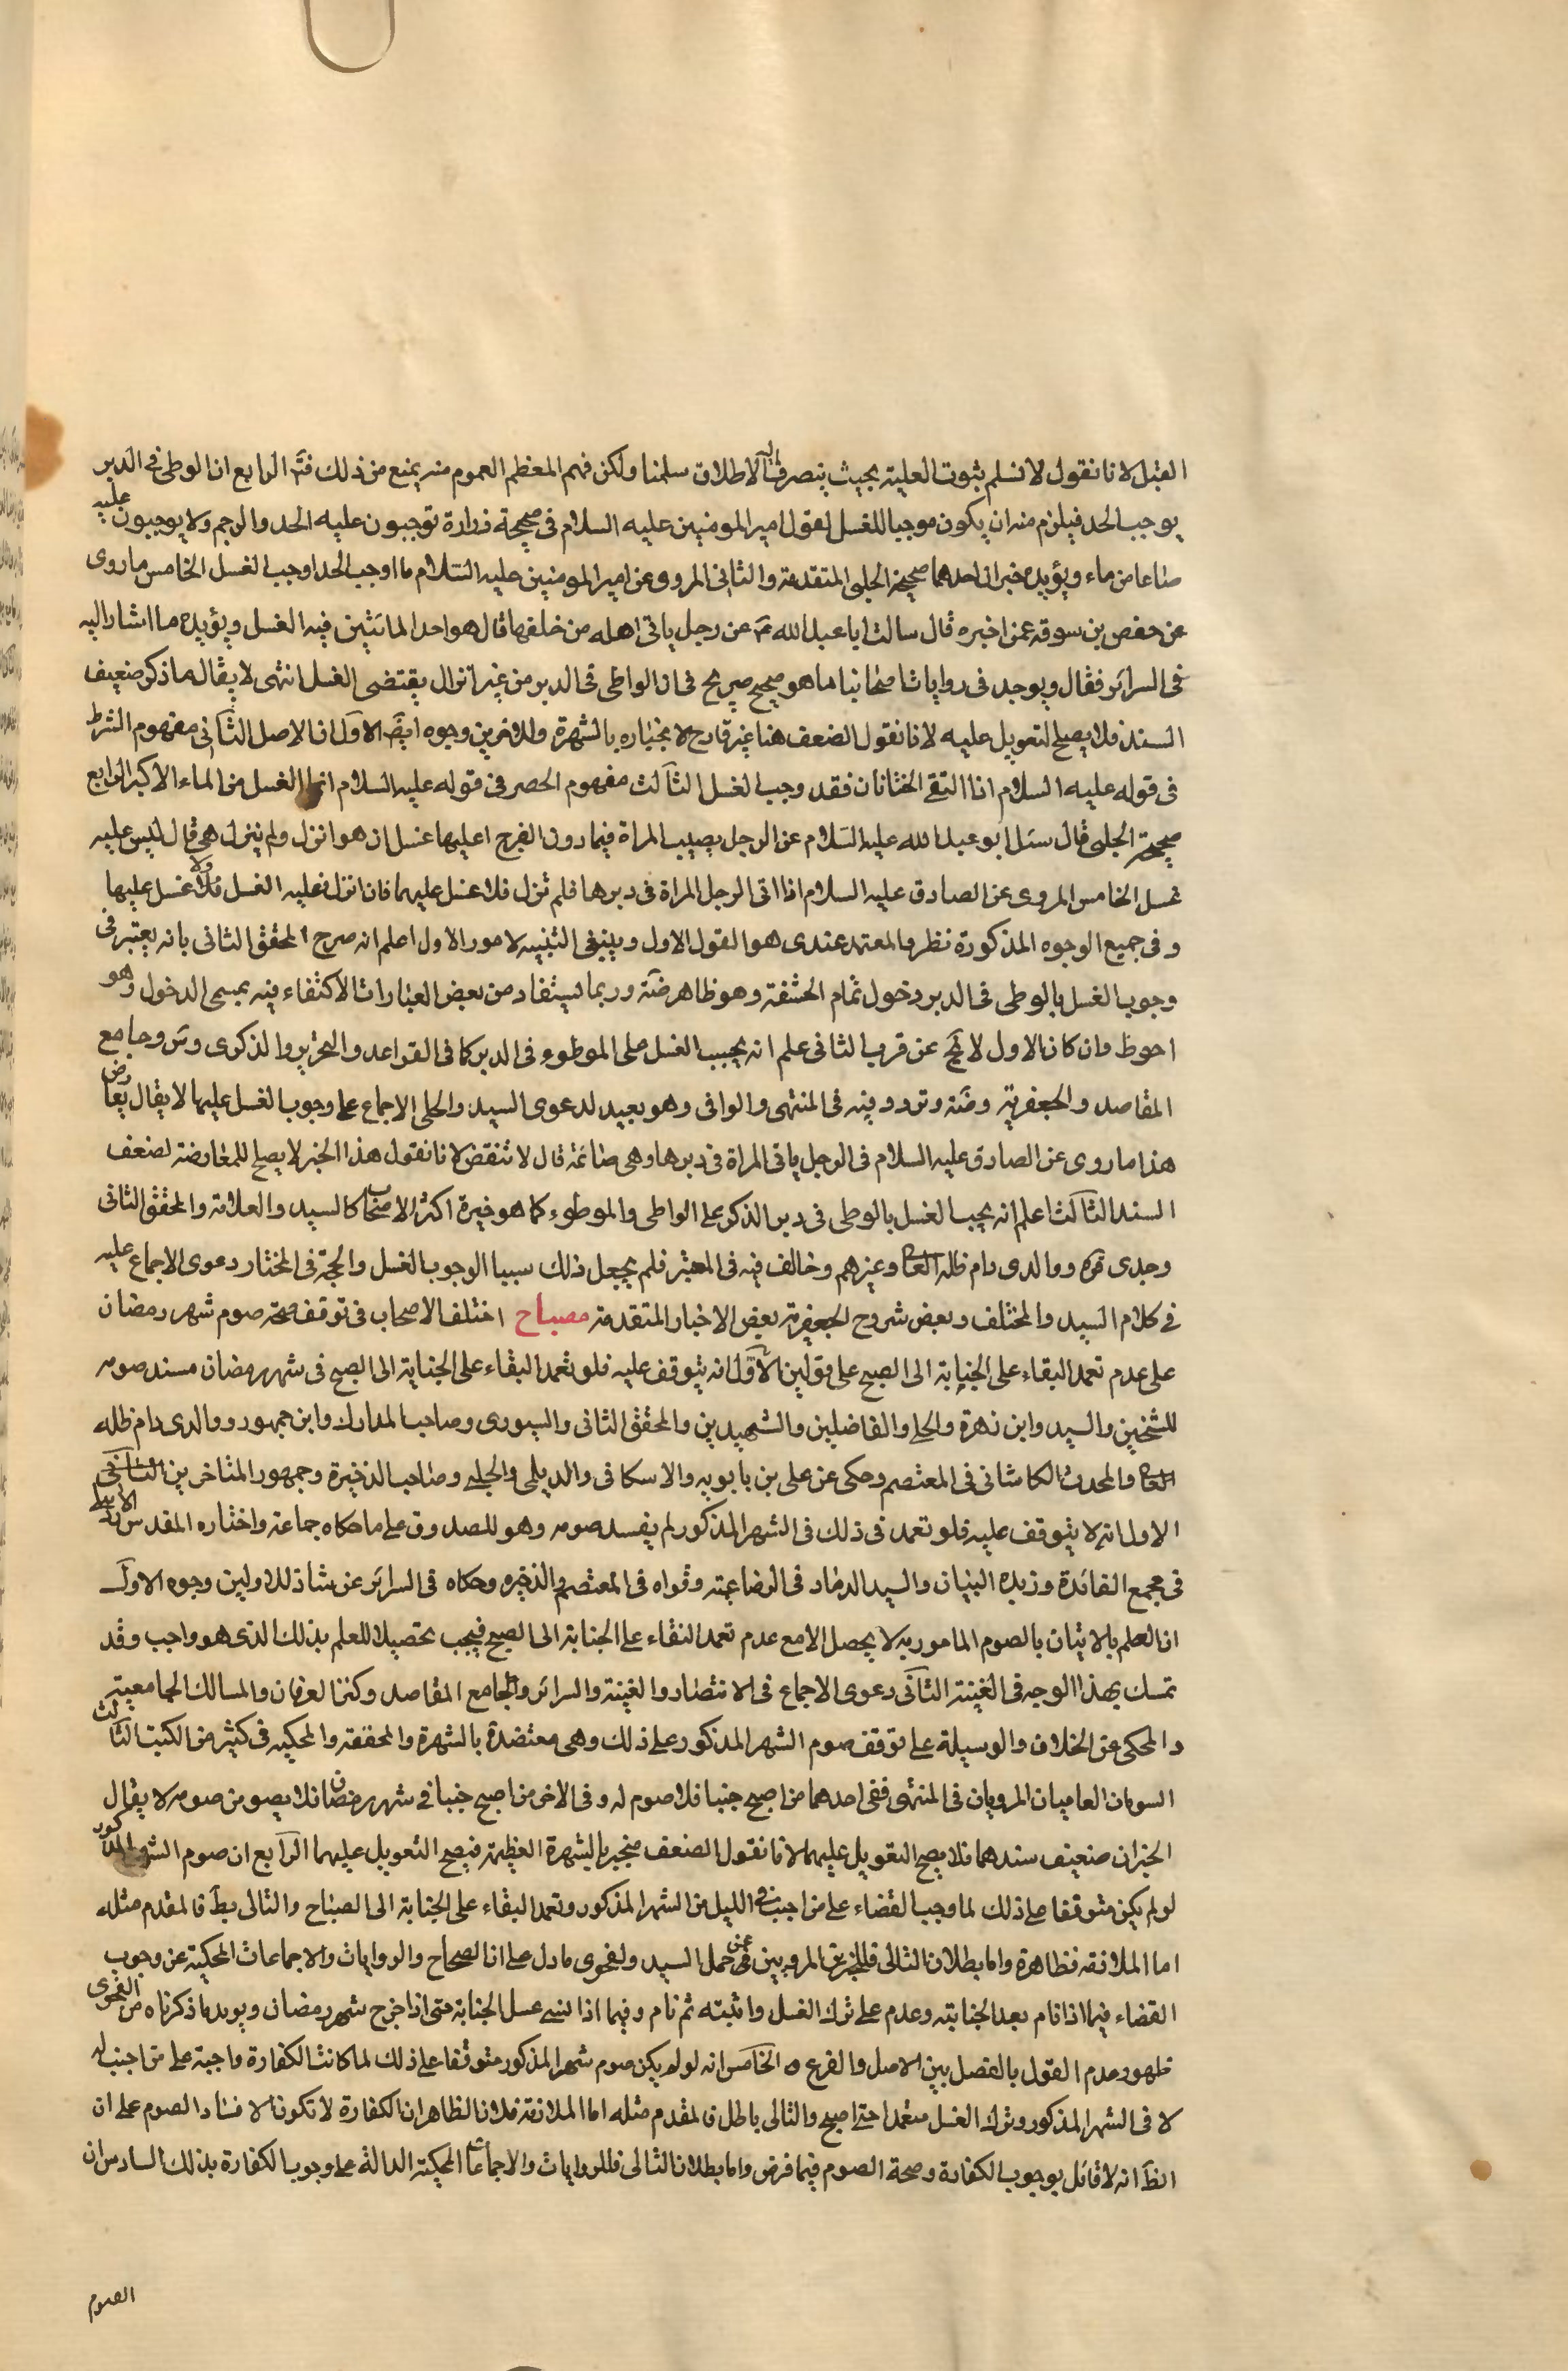 القبل لانا نقول لا نسلم بثبوت العلية بحيث ينصرف اليه الاطلاق سلمنا ولكن فهم المعظم العموم منه يمنع من ذلك فتم الرابع ان الوطى فى الدبر
يوجب الحد فيلزم منه ان يكون موجبا للغسل لقول امير المومنين عليه السلام فى صحيحة زرارة توجبون عليه الحد والرجم ولا يوجبون عليه
صاعا من ماء ويؤيده خبران احدهما صحيحة الحلبى المتقدمة والثانى المروى عن امير المومنين عليه السلام ما اوجب الحد اوجب الغسل الخامس ما روى
عن حفص بن سوقه عمن اخبره قال سالت ابا عبد الله ع عن رجل ياتى اهله من خلفها قال هو احد الماتيين فيه الغسل ويؤيده ما اشار اليه
فى السرائر فقال ويوجد فى روايات اصحابنا ما هو صحيح صريح فى ان الواطى فى الدبر من غير انزال يقتضى الغسل انتهى لا يقال ما ذكر ضعيف
السند فلا يصلح التعويل عليه لانا نقول الضعف هنا غير قادح لانجباره بالشهرة وللاخرين وجوه ايضا الاول ان الاصل الثانى مفهوم الشرط
فى قوله عليه السلام اذا التقى الختانان فقد وجب الغسل الثالث مفهوم الحصر فى قوله عليه السلام انما الغسل من الماء الاكبر الرابع
صحيحة الحلبى قال سئل ابو عبد الله عليه السلام عن الرجل يصيب المراة فيما دون الفرج اعليها غسل ان هو انزل ولم ينزل هى قال ليس عليه
غسل الخامس المروى عن الصادق عليه السلام اذا اتى الرجل المراة فى دبرها فلم ينزل فلا غسل عليهما فان انزل فعليه الغسل ولا غسل عليها
وفى جميع الوجوه المذكورة نظر والمعتمد عندى هو القول الاول وينبغى التنبيه لامور الاول اعلم انه صرح المحقق الثانى بانه يعتبر فى
وجوب الغسل بالوطى فى الدبر دخول تمام الحشفة وهو ظاهر ضة وربما يستفاد من بعض العبارات الاكتفاء فيه بمسمى الدخول وهو
احوط وان كان الاول لا يخ عن قرب الثانى علم انه يجب الغسل على الموطوء فى الدبر كما فى القواعد والتحرير والذكرى وس وجامع
المقاصد والجعفرية وضة وتردد فيه فى المنتهى والوافى وهو بعيد لدعوى السيد والحلى الاجماع على وجوب الغسل عليها لا يقال يعارض
هذا ما روى عن الصادق عليه السلام فى الرجل ياتى المراة فى دبرها وهى صائمة قال لا تنقض لانا نقول هذا الخبر لا يصلح للمعارضة لضعف
السند الثالث اعلم انه يجب الغسل بالوطى فى دبر الذكر على الواطى والموطوء كما هو خيرة اكثر الاصحاب كالسيد والعلامة والمحقق الثانى
وجدى قره ووالدى دام ظله العا وغيرهم وخالف فيه فى المعتبر فلم يجعل ذلك سببا لوجوب الغسل والحجة فى المختار دعوى الاجماع عليه
فى كلام السيد والمختلف وبعض شروح الجعفرية بعض الاخبار المتقدمة مصباح اختلف الاصحاب فى توقف صحة صوم شهر رمضان
على عدم تعمد البقاء على الجنابة الى الصبح على قولين الاول انه يتوقف عليه فلو تعمد البقاء على الجنابة الى الصبح فى شهر رمضان فسد صومه
للشيخين والسيد وابن زهرة والحلى والفاضلين والشهيدين والمحقق الثانى والسيورى وصاحب المدارك وابن جمهور ووالدى دام ظله
العا والمحدث الكاشانى فى المعتصم وحكى عن على بن بابويه والاسكافى والديلمى والحلبى وصاحب الذخيرة وجمهور المتاخرين الثانى
الاول انه لا يتوقف عليه فلو تعمد فى ذلك فى الشهر المذكور لم يفسد صومه وهو للصدوق على ما حكاه جماعة واختاره المقدس الاردبيلى
فى مجمع الفائدة وزبدة البيان والسيد الداماد فى الرضاعية وقواه فى المعتصم والذخيره وحكاه فى السرائر عن شاذ للاولين وجوه الاول
ان العلم بالاتيان بالصوم المامور به لا يحصل الا مع عدم تعمد البقاء على الجنابة الى الصبح فيجب تحصيلا للعلم بذلك الذى هو واجب وقد
تمسك بهذا الوجه فى الغنية الثانى دعوى الاجماع فى الانتصار والغنية والسرائر وجامع المقاصد وكنز العرفان والمسالك الجامعية
والمحكى عن الخلاف والوسيلة على توقف صوم الشهر المذكور على ذلك وهى معتضدة بالشهرة والمحققة والمحكيه فى كثير من الكتب الثالث
النبويان العاميان المرويان فى المنتهى ففى احدهما من اصبح جنبا فلا صوم له وفى الاخر من اصبح جنبا فى شهر رمضان فلا يصومن صومه لا يقال
الخبران ضعيف سندهما فلا يصح التعويل عليهما لانا نقول الضعف منجبر بالشهرة العظيمة فيصح التعويل عليهما الرابع ان صوم الشهر المذكور
لو لم يكن متوقفا على ذلك لما وجب القضاء على من اجنب فى الليل من الشهر المذكور وتعمد البقاء على الجنابة الى الصباح والتالى بط فالمقدم مثله
اما الملازمة فظاهرة واما بطلان التالى فللخبرين المرويين عن حمل السيد ولفحوى ما دل على ان الصحاح والروايات والاجماعات المحكية عن وجوب
القضاء فيما اذا نام بعد الجنابة وعزم على ترك الغسل وانتبه ثم نام وفيما اذا نسى غسل الجنابة حتى اذا خرج شهر رمضان ويويد ما ذكرناه من الفحوى
ظهور عدم القول بالفصل بين الاصل والفرع الخامس انه لو لم يكن صوم شهر المذكور متوقفا على ذلك لما كانت الكفارة واجبة على من اجنب
لا فى الشهر المذكور وترك الغسل متعمدا حتى اصبح والتالى باطل فالمقدم مثله اما الملازمة فلان الظاهر ان الكفارة لا تكون الا لفساد الصوم على ان
الظ انه لا قائل بوجوب الكفارة وصحة الصوم فيما فرض واما بطلان التالى فللروايات والاجماعات المحكية الدالة على وجوب الكفارة بذلك السادس ان
الصوم